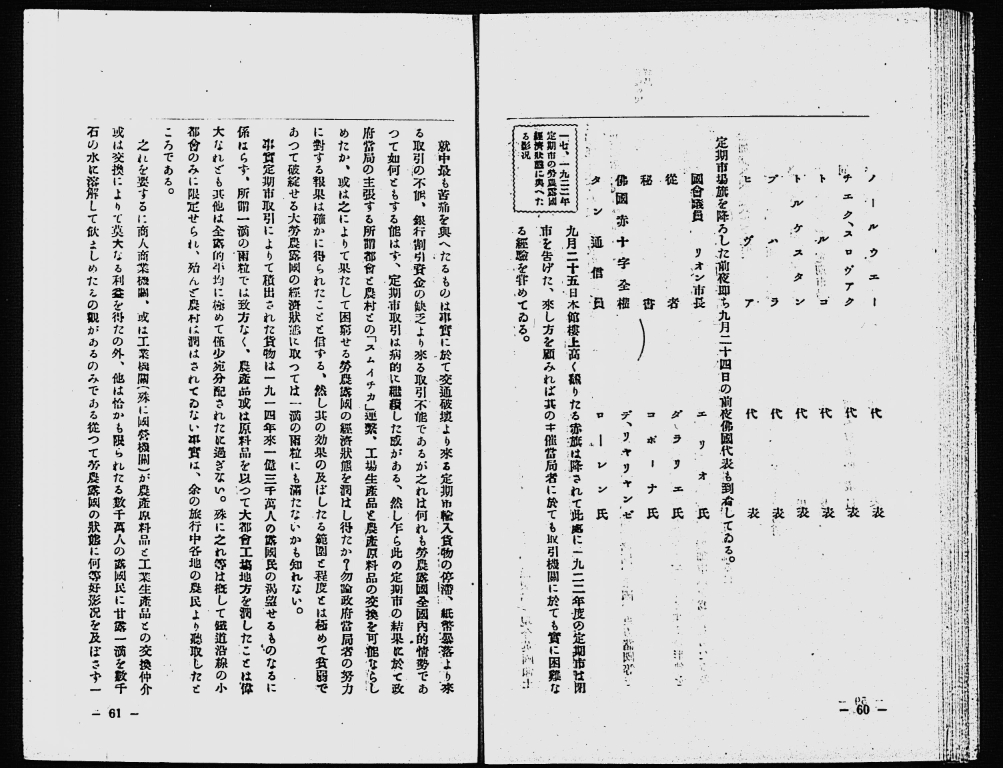 ノールウエー 代表
チエク、スロヴアク 代表
トルコ 代表
トルケスタン 代表
ブハラ 代表
ヒヴア 代表
定期市場旗を降ろした前夜即ち九月二十四日の前夜佛國代表も到着してゐる。
國會議員 リオン市長 エリオ氏
從者 ダラリエ氏
秘書 コポーナ氏
佛國赤十字全權 デ、リヤリヤンゼ
タン通信員 ローレン氏
一七、一九二二年
定期市の勞農露國
經濟狀態に與へた
る影況
九月二十五日本館樓上高く飜りたる赤旗は降されて此處に一九二二年度の定期市は閉
市を告げた、來し方を顧みれば其の主催當局者に於ても取引機關に於ても實に困難な
る經驗を甞めてゐる。
60
就中最も苦痛を與へたるものは事實に於て交通破壞より來る定期市輸入貨物の停滯、紙幣暴落より來
る取引の不能、銀行割引資金の缺乏より來る取引不能であるが之れは何れも勞農露國全國內的情勢であ
つて如何ともする能はず、定期市取引は病的に繼續した感がある、然し乍ら此の定期市の結果に於て政
府當局の主張する所謂都會と農村との「スムイチカ」連繫、工場生產品と農產原料品の交換を可能ならし
めたか、或は之によりて果たして困窮せる勞農露國の經濟狀態を潤はし得たか？勿論政府當局者の努力
に對する報果は確かに得られたことと信ずる、然し其の効果の及ぼしたる範圍と程度とは極めて貧弱で
あつて破綻せる大勞農露國の經濟狀態に取つては一滴の雨粒にも滿たないかも知れない。
事實定期市取引によりて積出された貨物は一九一四年來一億三千萬人の露國民の渴望せるものなるに
係はらず、所謂一滴の雨粒では致方なく、農產品或は原料品を以つて大都會工場地方を潤したことは偉
大なれども其他は全露的平均に極めて僅少宛分配されたに過ぎない。殊に之れ等は槪して鐵道沿線の小
都會のみに限定せられ、殆んど農村は潤はされてゐない事實は、余の旅行中各地の農民より聽取したと
ころである。
之れを要するに商人商業機關、或は工業機關(殊に國營機關)が農產原料品と工業生產品との交換仲介
或は交換によりて莫大なる利益を得たの外、他は恰かも限られたる數千萬人の露國民に甘露一滴を數千
石の水に溶解して飮ましめたるの觀があるのみである從つて勞農露國の狀態に何等好影況を及ぼさず一
61